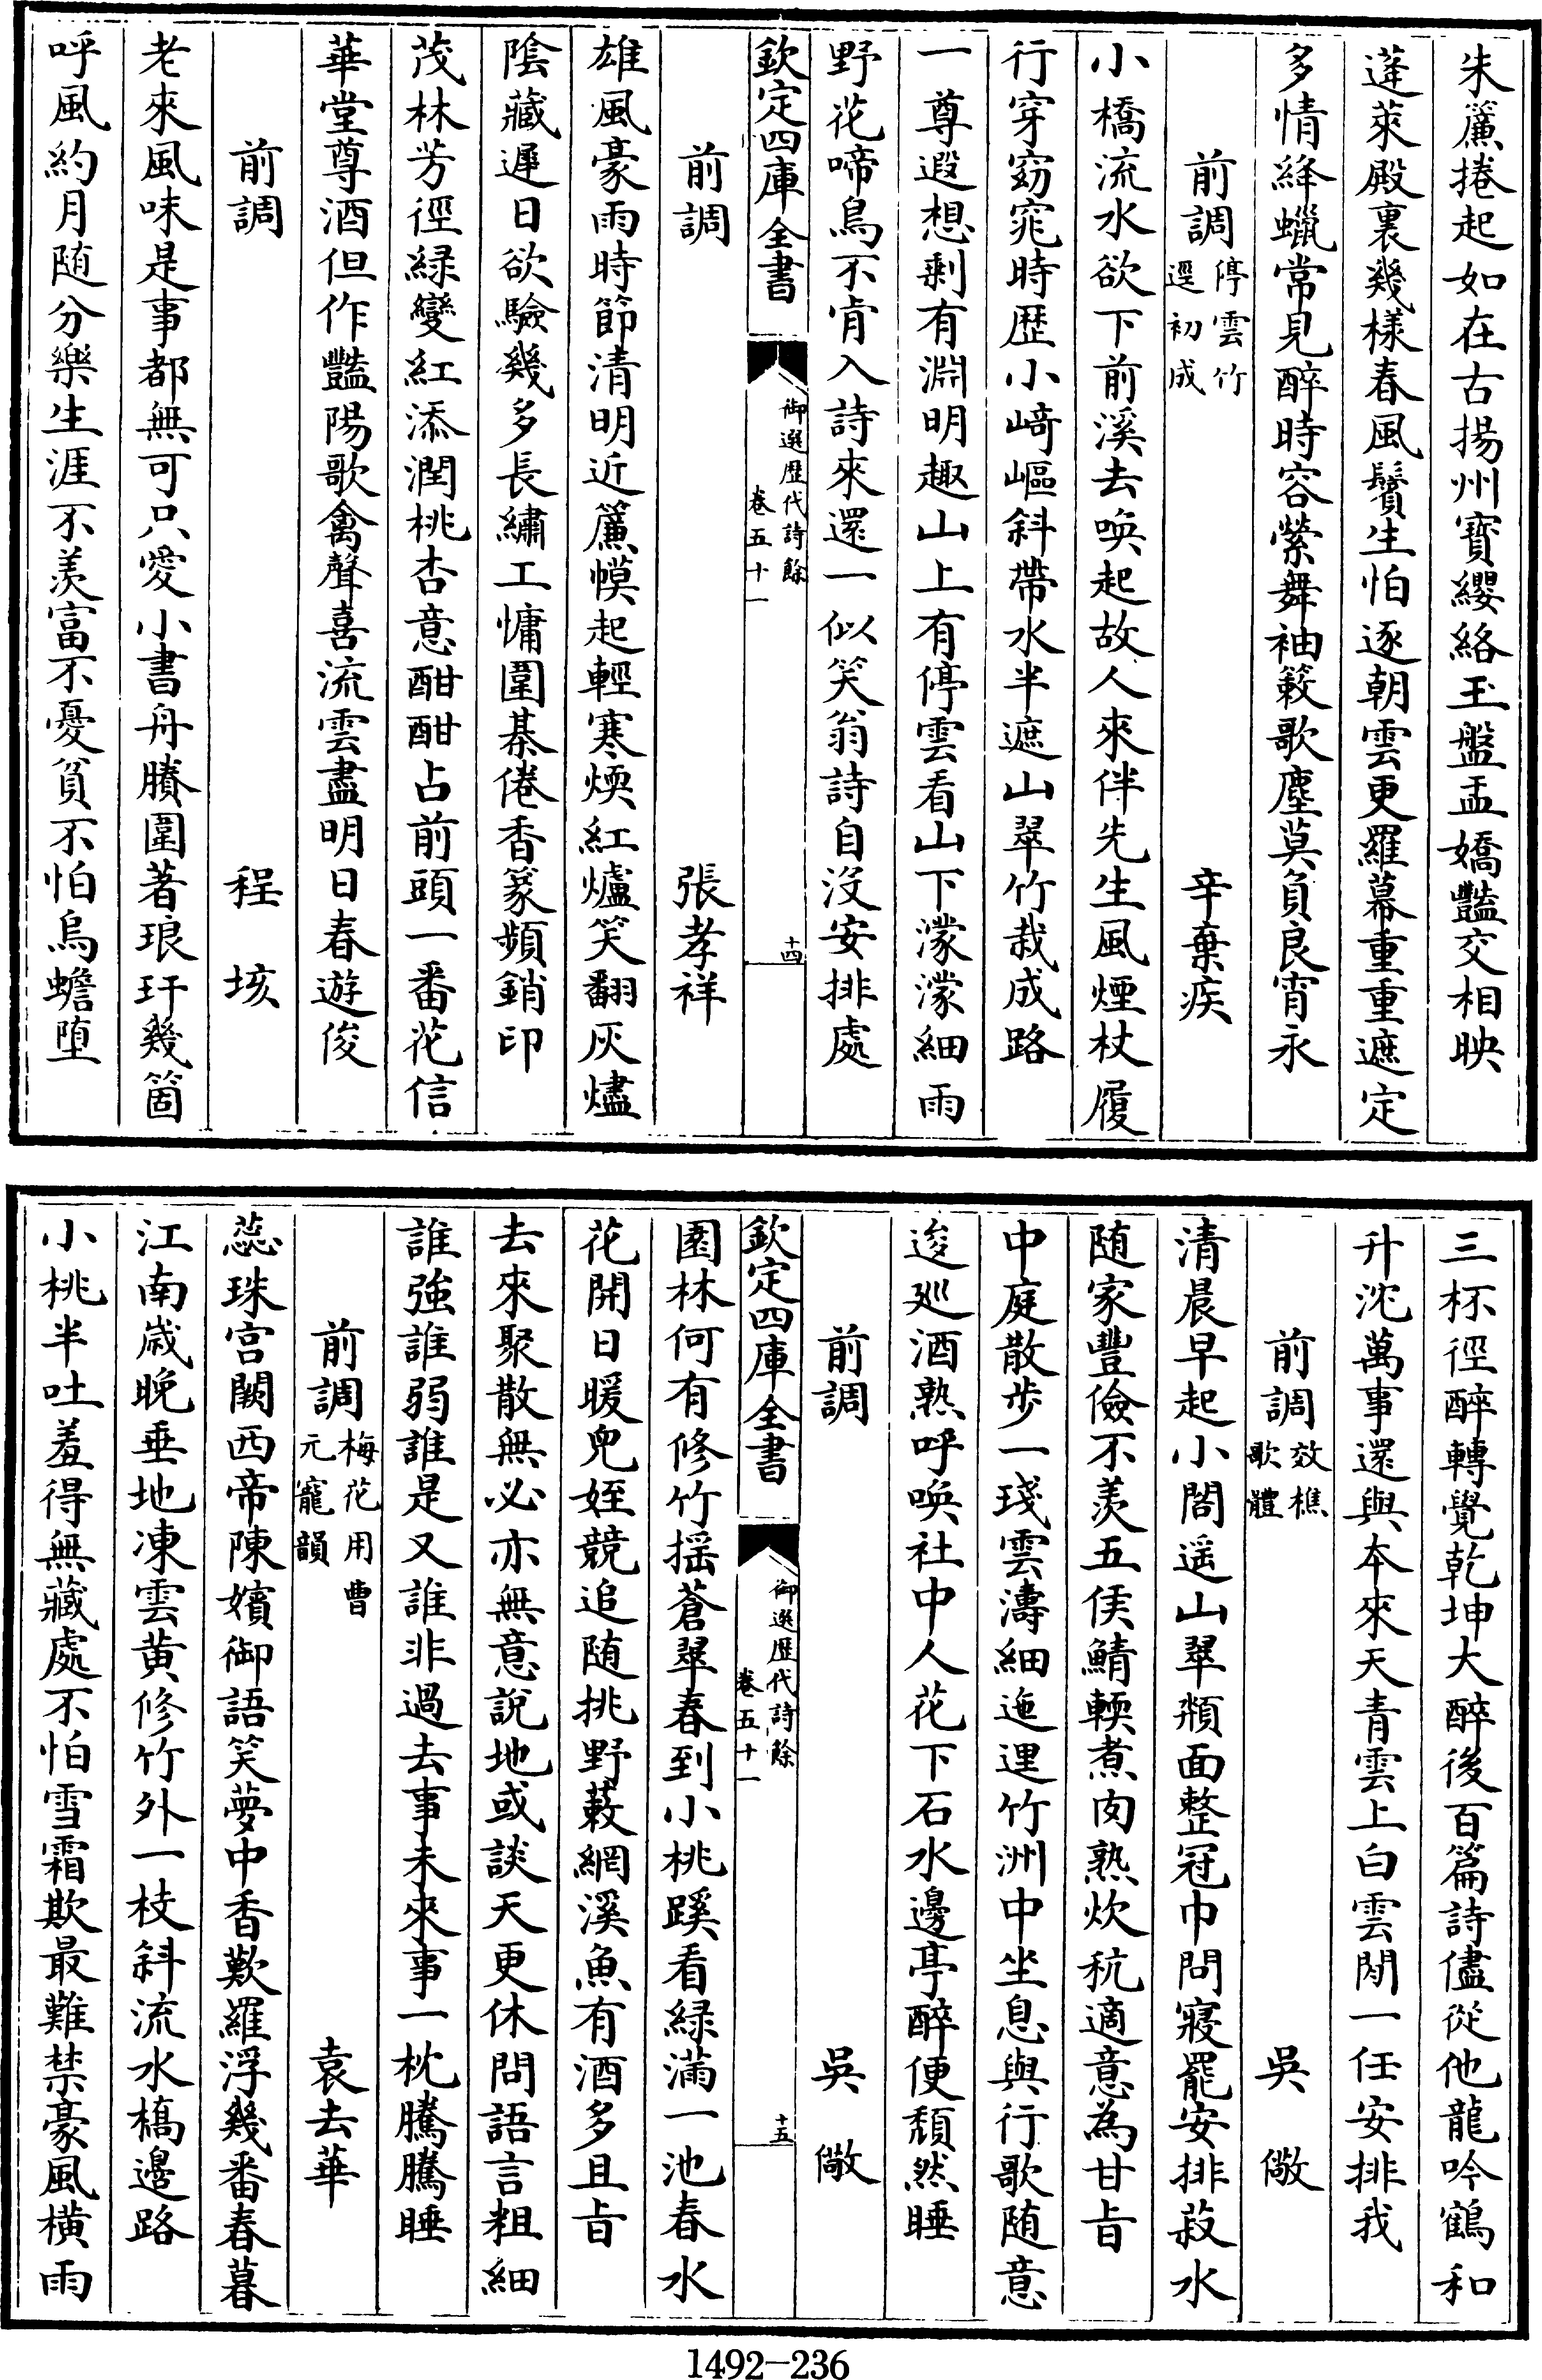 朱簾捲起如在古揚州寳纓絡玉盤盂嬌豔交相映
蓬萊殿裏幾様春風鬢生怕逐朝雲更羅幕重重遮定
多情絳蠟常見醉時容縈舞袖簌歌塵莫負良宵永
前調停雲竹逕初成 辛棄疾
小橋流水欲下前溪去喚起故人來伴先生風煙杖履
行穿窈窕時歴小﨑嶇斜帶水半遮山翠竹栽成路
一尊遐想剩有淵明趣山上有停雲看山下濛濛細雨
野花啼鳥不肯入詩來還一似笑翁詩自沒安排處
欽定四庫全書 御選歴代詩餘卷五十一 十四
前調 張孝祥
雄風豪雨時節清明近簾幙起輕寒煗紅爐笑翻灰燼
隂藏遲日欲驗幾多長繡工慵圍棊倦香篆頻銷印
茂林芳徑緑變紅添潤桃杏意酣酣占前頭一番花信
華堂尊酒但作豔陽歌禽聲喜流雲盡明日春遊俊
前調 程垓
老來風味是事都無可只愛小書舟賸圍著琅玕幾箇
呼風約月随分樂生涯不羨富不憂貧不怕烏蟾墮
三杯徑醉轉覺乾坤大醉後百篇詩儘從他龍吟鶴和
升沈萬事還與本來天青雲上白雲閒一任安排我
前調效樵歌體 吳儆
清晨早起小閣遥山翠頮面整冠巾問寢罷安排菽水
随家豐儉不羨五侯鯖輭煮肉熟炊秔適意為甘旨
中庭散步一琖雲濤細迤逦竹洲中坐息與行歌随意
逡廵酒熟呼喚社中人花下石水邊亭醉便頹然睡
前調 吳儆
園林何有修竹揺蒼翠春到小桃蹊看緑滿一池春水
花開日暖兒姪競追随挑野蔌網溪魚有酒多且旨
去來聚散無必亦無意說地或談天更休問語言粗細
誰強誰弱誰是又誰非過去事未來事一枕騰騰睡
前調梅花用曹元寵韻 袁去華
蕊珠宫闕西帝陳嬪御語笑夢中香歎羅浮幾番春暮
江南歳晚垂地凍雲黄修竹外一枝斜流水橋邉路
小桃半吐羞得無藏處不怕雪霜欺最難禁豪風横雨
欽定四庫全書 御選歴代詩餘卷五十一 十五
1492-236